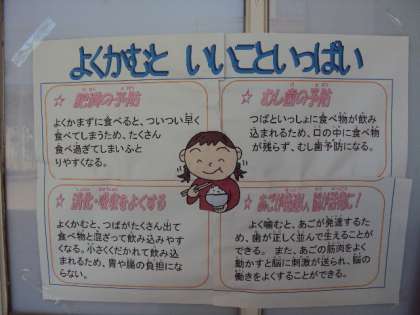 よくかむと いいこといっぱい
☆ 肥満の予防
よくかまずに食べると、ついつい早く
食べてしまうため、たくさん
食べ過ぎてしまいふと
りやすくなる。
☆ むし歯の予防
つばといっしょに食べ物が飲み
込まれるため、口の中に食べ物
が残らず、むし歯予防になる。
☆ 消化・吸収をよくする
よくかむと、つばがたくさん出て
食べ物と混ざって飲み込みやす
くなる。小さくくだかれて飲み込
まれるため、胃や腸の負担にな
らない。
☆ あごが発達し、脳が活発に!
よく噛むと、あごが発達するた
め、歯が正しく並んで生えることが
できる。また、あごの筋肉をよく
動かすと脳に刺激が送られ、脳の
働きをよくすることができる。